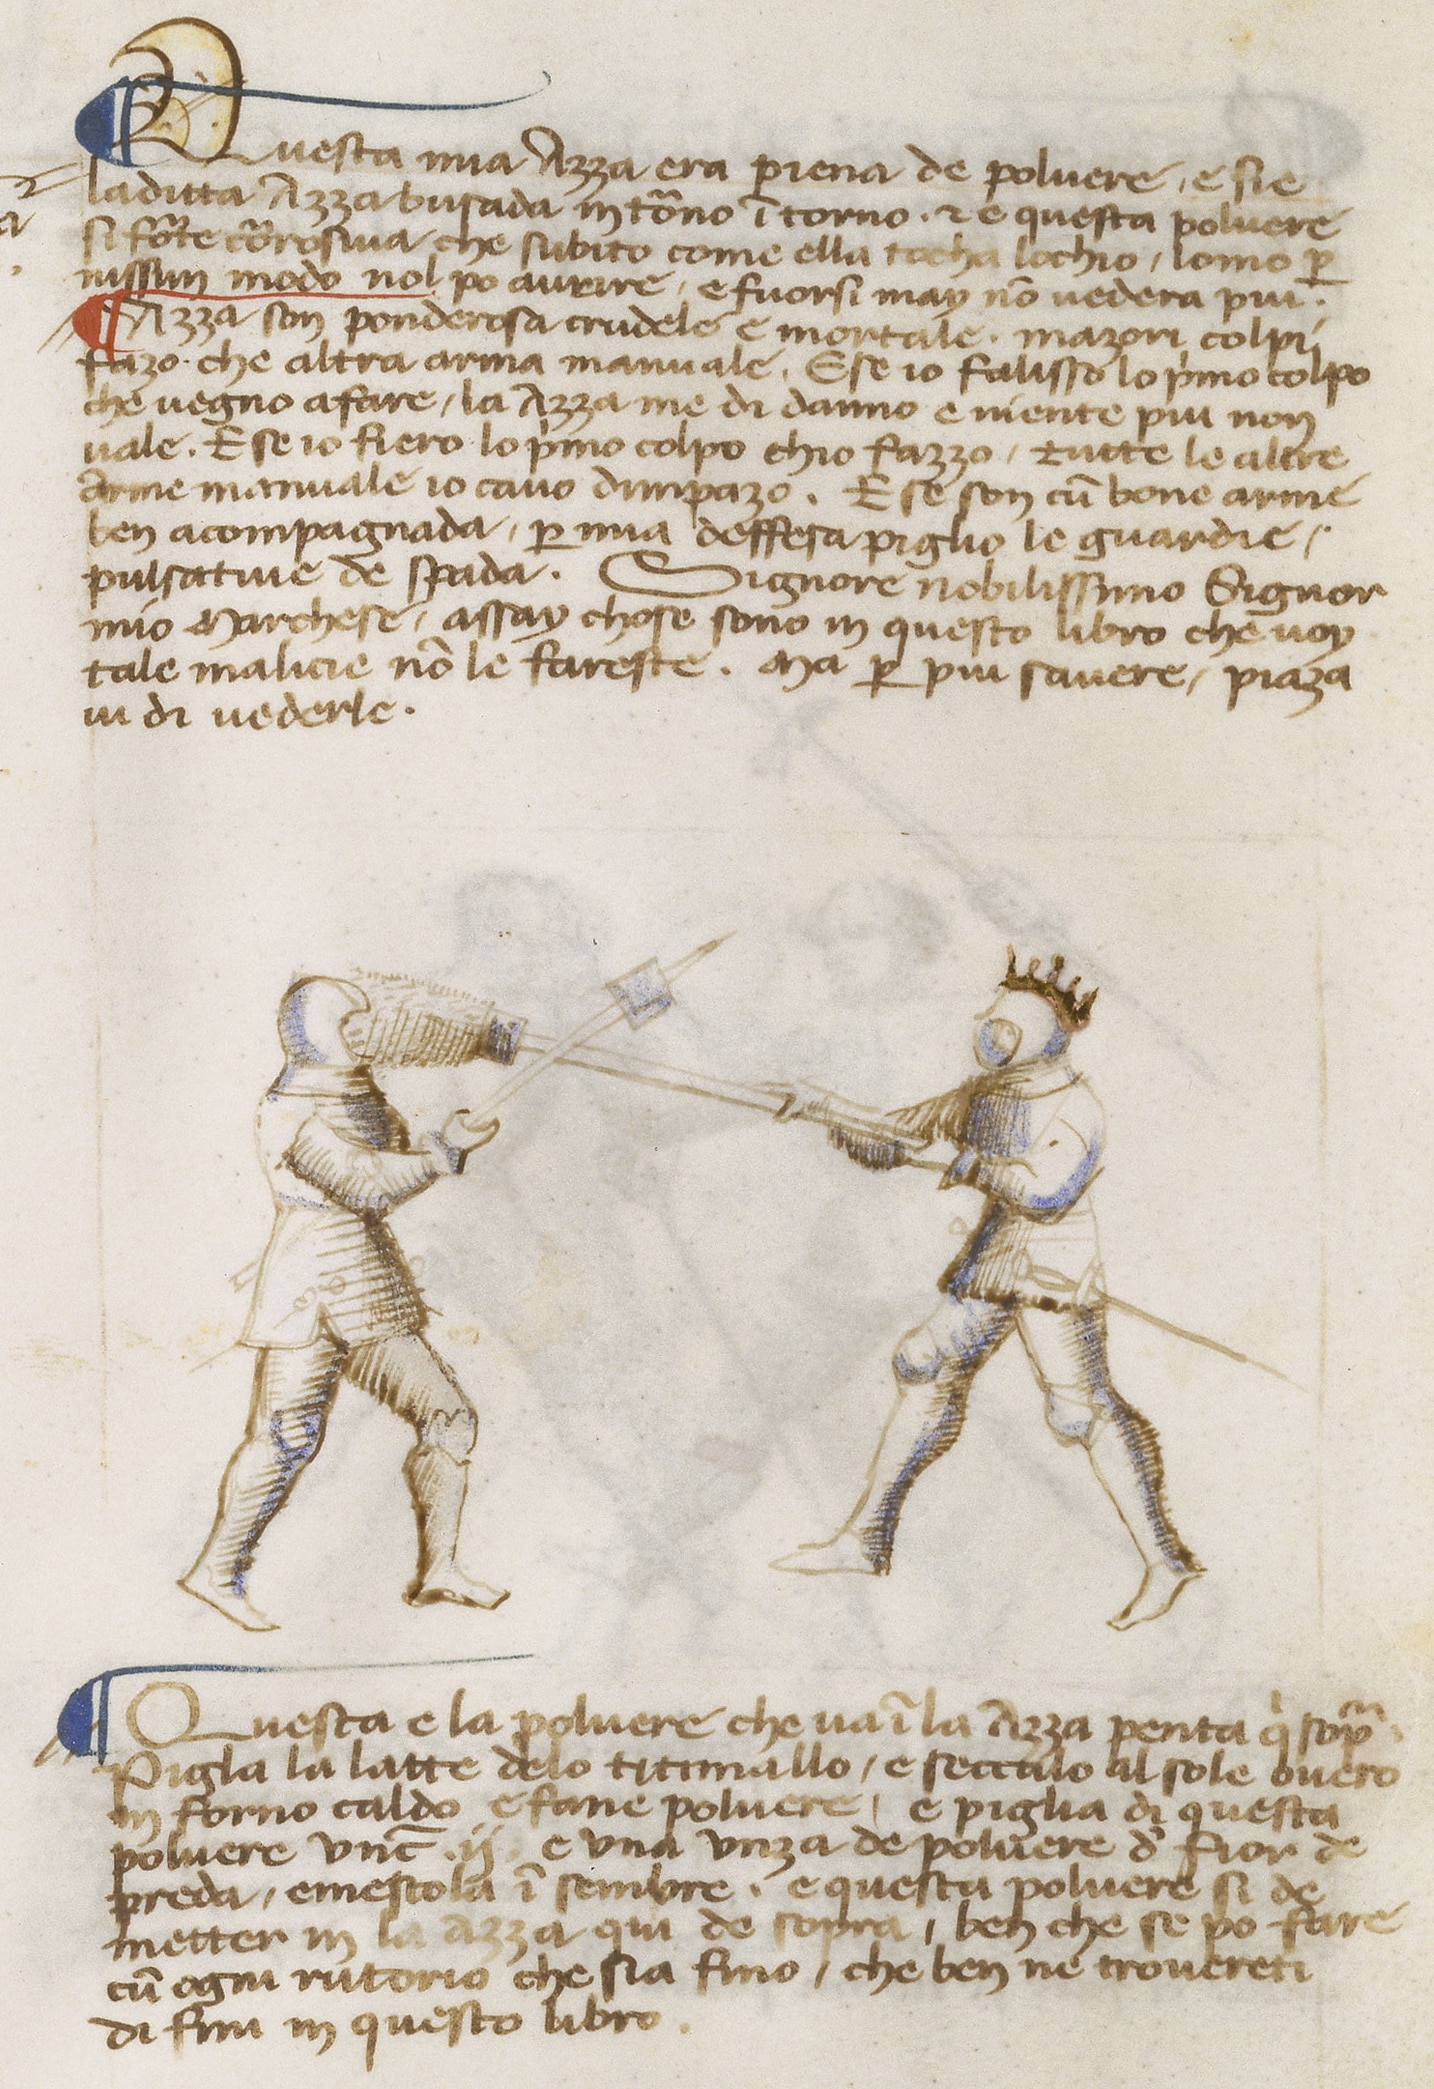 Questa mia Azza era piena de polvere, e si e
la ditta Azza busada in tōrno ī torno. ⁊ e questa polvere
si fōrte cōrosiva che subito come ella tocha lochio, lomo p̲
nissun modo nol po avrire, e fuorsi may nō vedera piu.
Azza son ponderosa crudele e mortale. mazori colpi
fazo che altra arma manuale. E se io falisso lo p'mo colpo
che vegno a fare, la Azza me di danno e niente piu non
vale. E se io fiero lo p'mo colpo chio fazzo, tutte le altre
arme manuale io cavo dimpazo. E se son cū bone arme
ben acompagnada, p̲ mia deffesa piglio le guardie,
pulsative de spada. Signore nobilissimo Signor
mio Marchese, assay chose sono in questo libro che voy
tale malicie nō le fareste. Ma p̲ piu savere, piaza
vi di vederle.
Questa e la polvere che va ī la Azza penta q' sop̄ᵃ.
Pigla la latte delo titimallo, e seccalo al sole overo
in forno caldo e fane polvere, e piglia di questa
polvere vnc̄ .ij. e vna vnza de polvere d' fior de
preda, e mestola ī sembre. e questa polvere si de
metter in la Azza qui de sopra, ben che se po fare
cū ogni rutorio che sia fino, che ben ne trovereti
di fini in questo libro.